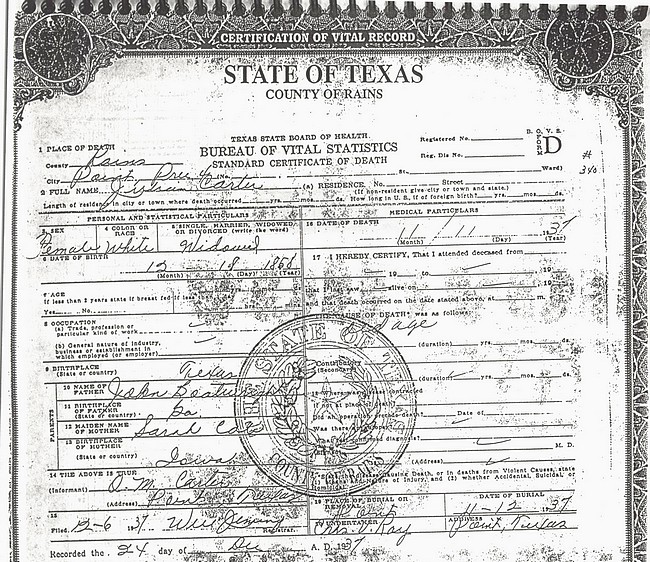 CERTIFICATION OF VITAL RECORD
STATE OF TEXAS
COUNTY OF RAINS
TEXAS STATE BOARD OF HEALTH
BUREAU OF VITAL STATISTICS
STANDARD CERTIFICATE OF DEATH
Registered No.
Reg. Dis No.
B. O. V. S.
FORM D
#
340
1 PLACE OF DEATH
County Rains
City Point, St. Ward)
2 FULL NAME Carter (a) RESIDENCE, No. Street
(If non-resident give city or town and state.)
Length of residence in city or town where death occurred yrs. mos. ds. How long in U. S., if of foreign birth? yrs. mos. ds.
PERSONAL AND STATISTICAL PARTICULARS
3. SEX Female
4 COLOR OR RACE White
5 SINGLE, MARRIED, WIDOWED, OR DIVORCED (write the word) Widowed
6 DATE OF BIRTH
12 18 1868
(Month) (Day) (Year)
7 AGE
If less than 2 years state if breast fed if less
Yes No.
8 OCCUPATION
(a) Trade, profession or particular kind of work
(b) General nature of industry, business or establishment in which employed (or employer)
9 BIRTHPLACE (State or country) Texas
PARENTS
10 NAME OF FATHER John
11 BIRTHPLACE OF FATHER (State or country) Ga
12 MAIDEN NAME OF MOTHER Sarah
13 BIRTHPLACE OF MOTHER (State or country) Iowa
14 THE ABOVE IS TRUE
(Informant) O. M. Carter
(Address) Point Texas
15
Filed 12-6 1937 Will Registrar.
Recorded the 24 day of Dec A. D. 1937
MEDICAL PARTICULARS
16 DATE OF DEATH
11 11 1937
(Month) (Day) (Year)
17 I HEREBY CERTIFY, That I attended deceased from
19 to 19
that I last saw alive on 19
and that death occurred on the date stated above, at m.
CAUSE OF DEATH, was as follows:
age
(duration) yrs. mos. ds.
Contributory
(Secondary)
(duration) yrs. mos. ds.
18 Where was contracted
if not at place of
Did an operation precede death? Date of
Was there
What test confirmed diagnosis?
M. D.
(Address)
Causing Death, or in deaths from Violent Causes, state
and Nature of Injury, and (2) whether Accidental, Suicidal, or
19 PLACE OF BURIAL OR REMOVAL Point
DATE OF BURIAL 11-12 1937
20 UNDERTAKER Ray
ADDRESS Point, Texas
THE STATE OF TEXAS
COUNTY OF RAINS